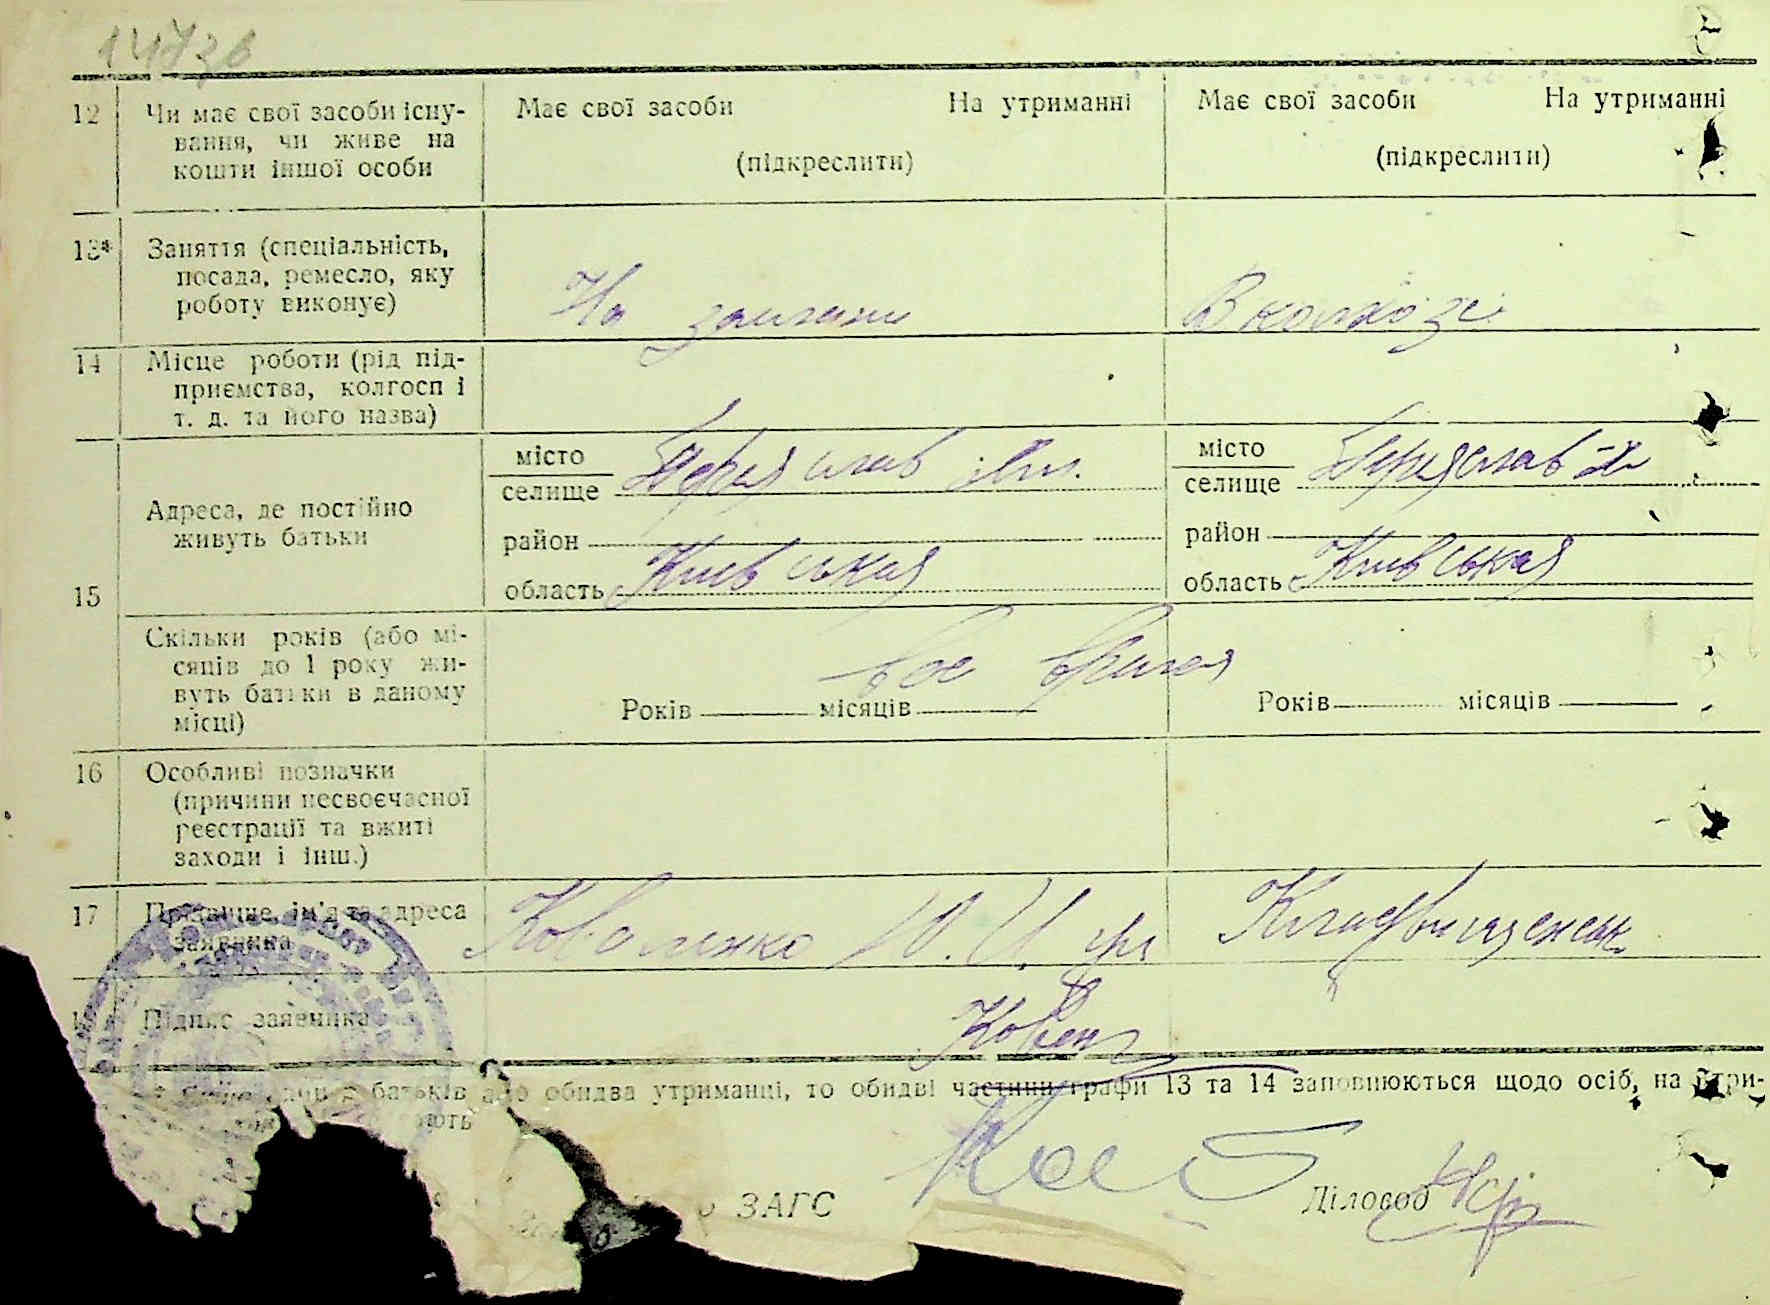 12 Чи має свої засоби існу-
вання, чи живе на
кошти іншої особи
Має свої засоби На утриманні
(підкреслити)
Має свої засоби На утриманні
(підкреслити)
13* Заняття (спеціальність,
посада, ремесло, яку
роботу виконує)
На
В колхозе
14 Місце роботи (рід під-
приємства, колгосп і
т. д. та його назва)
15
Адреса, де постійно
живуть батьки
місто
селище Переяслав Хм.
район
область Киевськая
місто
селище Переяслав Х
район
область Киевськая
Скільки років (або мі-
сяців до 1 року жи-
вуть батьки в даному
місці)
все время
Років місяців
Років місяців
16 Особливі позначки
(причини несвоєчасної
реєстрації та вжиті
заходи і інш.)
17 Прізвище, ім'я та адреса
заявника
Коваленко
Підпис заявника
батьків або обидва утриманні, то обидві частини графи 13 та 14 заповнюються щодо осіб, на утри-
ють
ЗАГС
Діловод